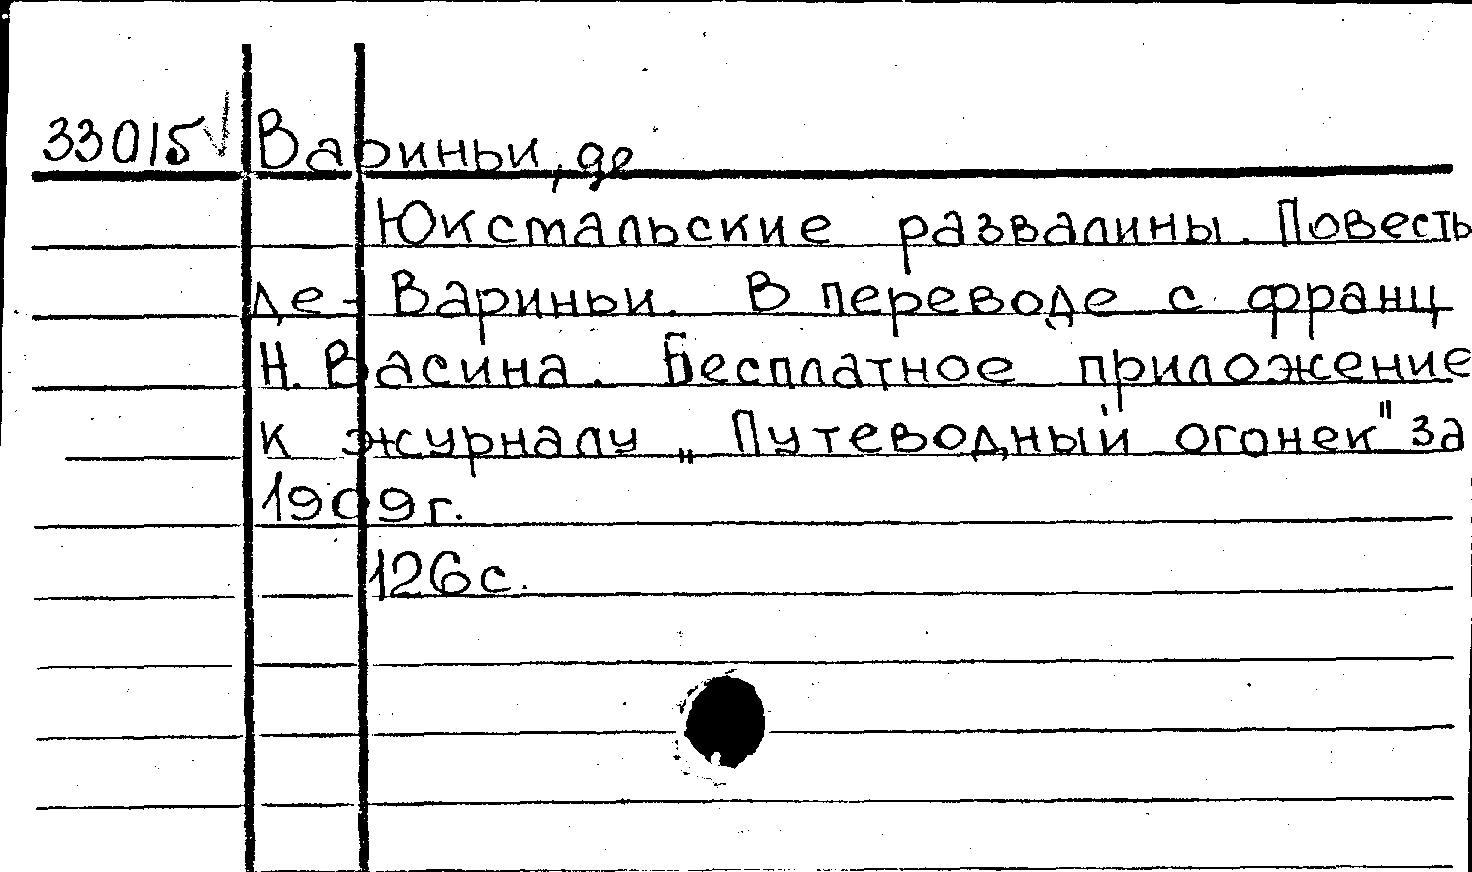 33015√ Вариньи, де
Юкстальские развалины. Повесть
де-Вариньи. В переводе с франц
Н. Васина. Бесплатное приложение
к журналу „Путеводный огонек" за
1909г.
126с.